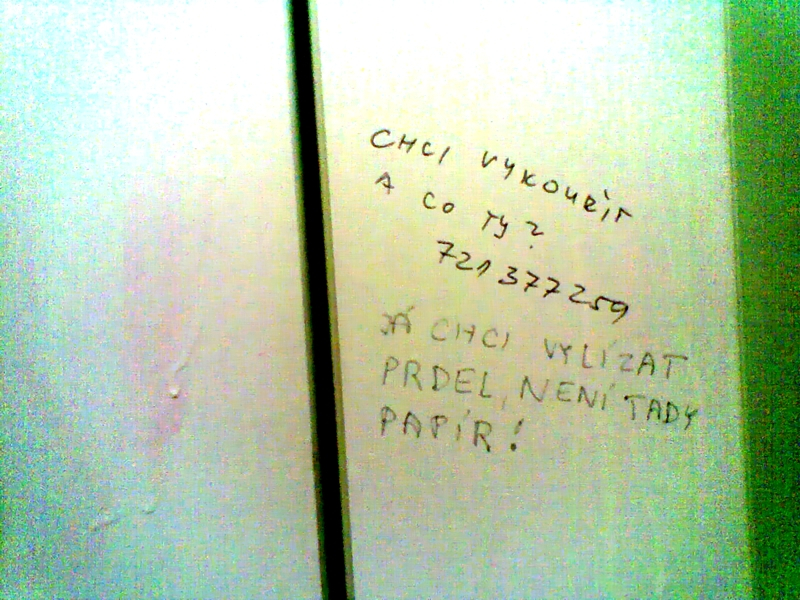 CHCI VYKOUŘIT
A CO TY?
721377259
JÁ CHCI VYLÍZAT
PRDEL, NENÍ TADY
PAPÍR!